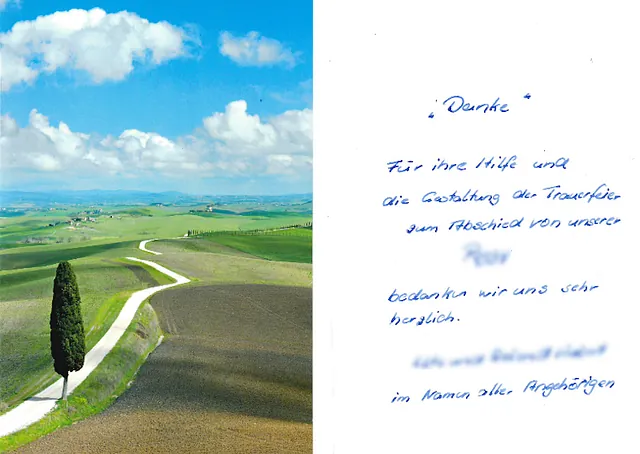 „Danke“
Für ihre Hilfe und
die Gestaltung der Trauerfeier
zum Abschied von unserer
bedanken wir uns sehr
herzlich.
im Namen aller Angehörigen